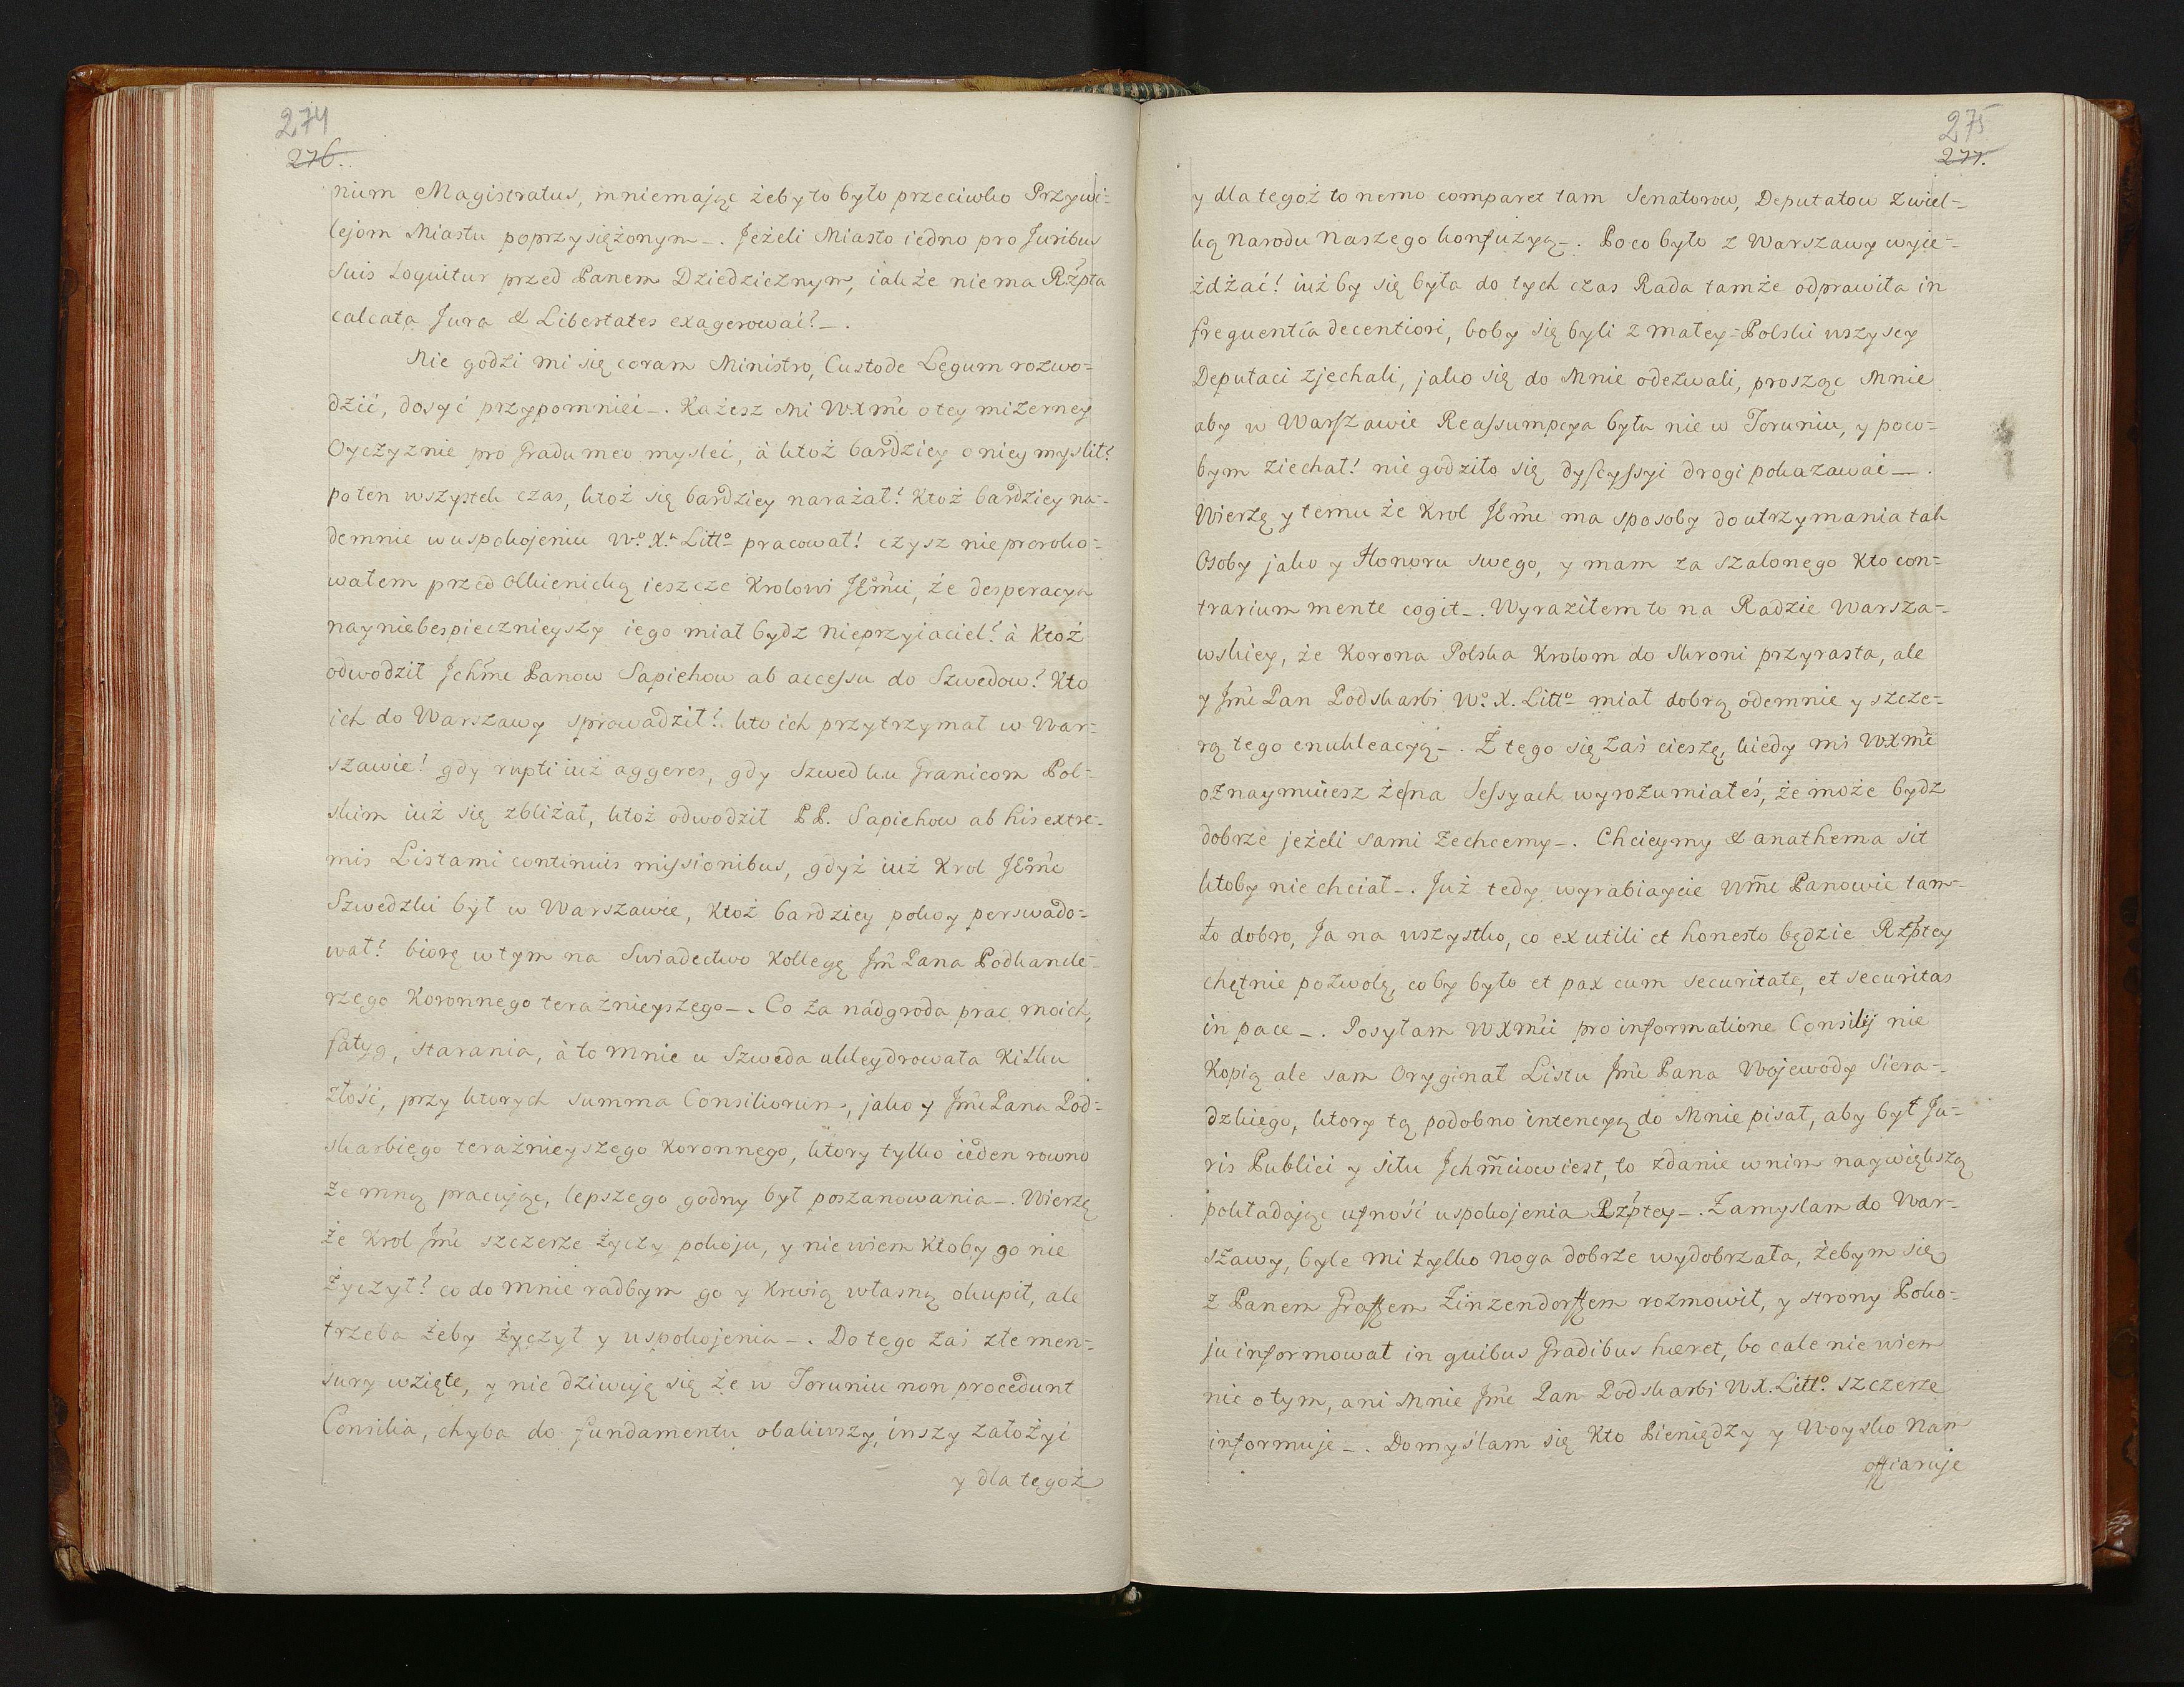 274
276.
nium Magistratus, mniemając żeby to było przeciwko Przywi=
lejom Miastu poprzysiężonym_. Jeżeli Miasto iedno pro Juribus
Suis loquitur przed Panem Dziedzicznym, iakże niema Rzpta
calcata Jura & Libertates exagerować?_.
Nie godzi mi się coram Ministro, Custode Legum rozwo=
dzić, dosyć przypomnieć_. Każesz Mi WXmć o tey mizerney
Oyczyznie pro Gradu meo myslei, à ktoż bardziey o niey myslił?
po ten wszystek czas, ktoż się bardziey narażał! Ktoż bardziey na=
demnie w uspokojeniu Wo. X.a Litto. pracował! czysz nie proroko=
wałem przed Olkienicką ieszcze Krolowi JEmći, że desperacya
nayniebespiecznieyszy iego miał bydz nieprzyiaciel? à Ktoż
odwodził Jchme Panow Sapiehow ab accessu do Szwedow? Kto
ich do Warszawy sprowadził! kto ich przytrzymał w War=
szawie! gdy rupti iuż aggeres, gdy Szwed ku Granicom Pol=
skim iuż się zbliżał, ktoż odwodził PP. Sapiehow ab his extre=
mis Listami continuis missionibus, gdyż iuż Krol JEmć
Szwedzki był w Warszawie, Ktoż bardziey pokoy perswado=
wał? biorę w tym na Swiadectwo Kollegę Jm Pana Podkancle=
rzego Koronnego teraźnieyszego_. Co za nadgroda prac moich,
fatyg, starania, à to mnie u Szweda ukleydrowała Kilku
złość, przy ktorych summa Consiliorum, jako y Jmć Pana Pod=
skarbiego teraźnieyszego Koronnego, ktory tylko ieden rowno
ze mną pracując, lepszego godny był poszanowania_. Wierzę
że Krol Jmć szczerze życzy pokoju, y nie wiem Ktoby go nie
życzył? co do mnie radbym go y Krwią własną okupił, ale
trzeba żeby życzył y uspokojenia_. Do tego zaś złe men=
sury wzięte, y nie dziwuję się że w Toruniu non procedunt
Consilia, chyba do fundamentu obaliwszy, inszy założyi
y dla tegoż
275
277.
y dla tegoż to nemo comparet tam Senatorow, Deputatow z wiel=
ką Narodu Naszego konfuzyą_. Poco było z Warszawy wyie=
żdżać! iuż by się była do tych czas Rada tamże odprawiła in
frequentia decentiori, boby się byli z Małey=Polski wszyscy
Deputaci zjechali, jako się do Mnie odezwali, prosząc Mnie
aby w Warszawie Reassumpcya była nie w Toruniu, y poco=
bym ziechał! nie godziło się dyscyssyi drogi pokazawai_.
Wierzę y temu że Krol JEmć ma sposoby do utrzymania tak
Osoby jako y Honoru swego, y mam za szalonego Kto con=
trarium mente cogit_. Wyraziłem to na Radzie Warsza=
wskiey, że Korona Polska Krolom do skroni przyrasta, ale
y Jmć Pan Podskarbi Wo. X. Litto. miał dobrą odemnie y szcze=
rą tego enukleacyą_. Z tego się zaś cieszę, kiedy mi WXmć
oznaymuiesz że na Sessyach wyrozumiałeś, że może bydz
dobrze jeżeli sami zechcemy_. Chcieymy & anathema sit
ktoby nie chciał_. Już tedy wyrabiaycie Wmć Panowie tam=
to dobro, Ja na wszystko, co ex utili et honesto będzie Rzptey
chętnie pozwolę, co by było et pax cum securitate, et securitas
in pace_. Posyłam WXmći pro informatione Consilij nie
Kopią ale sam Oryginał Listu Jmć Pana Wojewody Siera=
dzkiego, ktory tę podobno intencyą do Mnie pisał, aby był Ju=
ris Publici y situ Jchmciow iest, to zdanie w nim naywiększą
pokładając ufność uspokojenia Rzptey_. Zamyslam do War=
szawy, byle mi tylko noga dobrze wydobrzała, żebym się
z Panem Graffem Zinzendorffem rozmowił, y strony Poko=
ju informował in quibus Gradibus hæret, bo cale nie wiem
nic o tym, ani Mnie Jmć Pan Podskarbi WX. Litto. szczerze
informuje_. Domyślam się Kto Pieniędzy y Woysko Nam
offiaruje